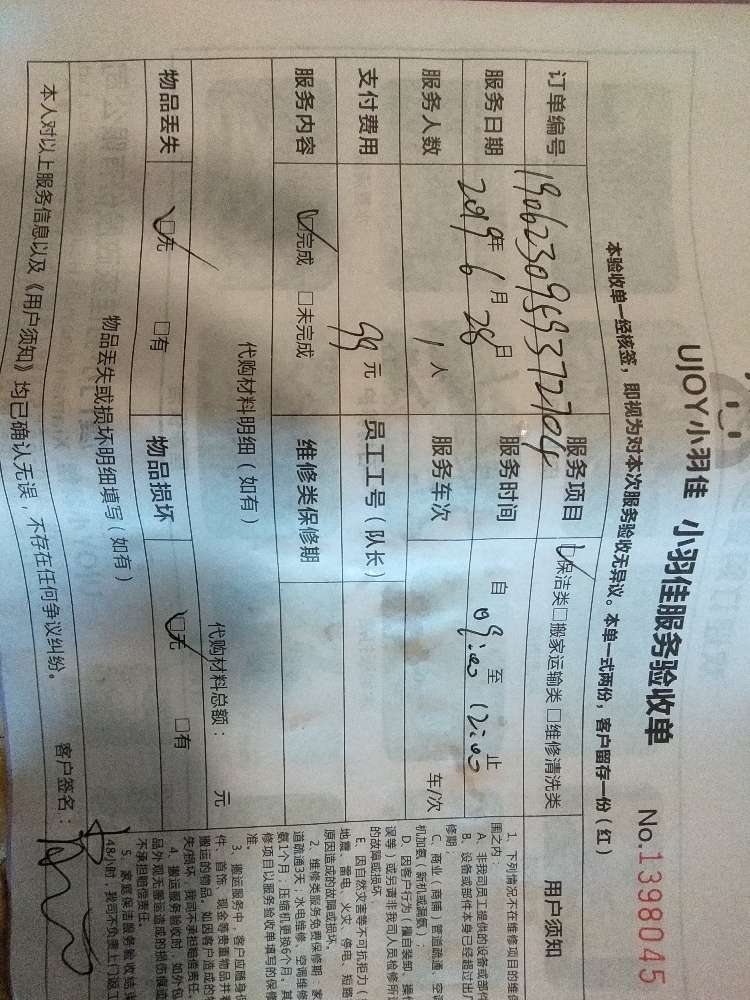 UJOY小羽佳 小羽佳服务验收单 No.1398045
本验收单一经核签，即视为对本次服务验收无异议。本单一式两份，客户留存一份（红）
订单编号 服务项目 ☑保洁类□搬家运输类□维修清洗类
服务日期 2019年6月28日 服务时间 自09:00至12:00止
服务人数 1人 服务车次 车/次
支付费用 99元 员工工号（队长）
服务内容 ☑完成 □未完成 维修类保修期
代购材料明细（如有） 代购材料总额： 元
物品丢失 ☑无 □有 物品损坏 ☑无 □有
物品丢失或损坏明细填写（如有）
本人对以上服务信息以及《用户须知》均已确认无误，不存在任何争议纠纷。 客户签名：
用户须知
1、下列情况不在维修项目的维
围之内：
A、非我司员工提供的设备或部件
B、设备或部件本身已经超过出厂
修期；
C、商业（商铺）管道疏通、空调
机加氨（新机或漏氨）；
D、因客户行为（擅自装卸、操作
误等）或另请非我司人员检修所
的故障或损坏
E、因自然灾害等不可抗拒力（
地震、雷电、火灾、停电、短路
原因造成的故障或损坏。
2、维修类服务免费保修期：家
道疏通3天；水电维修、空调维修
氨1个月，压缩机更换6个月。其
修项目以服务验收单填写的保修
准。
3、搬运服务中，客户应随身保
件、首饰、现金等贵重物品并看
搬运的物品。如因客户造成的
失/损坏，我司不承担赔偿责任。
4、搬运服务验收时，如外包
品外观无搬运造成的损伤痕或
不承担赔偿责任。
5、家庭保洁服务验收结束
48小时，我司不负责上门返工